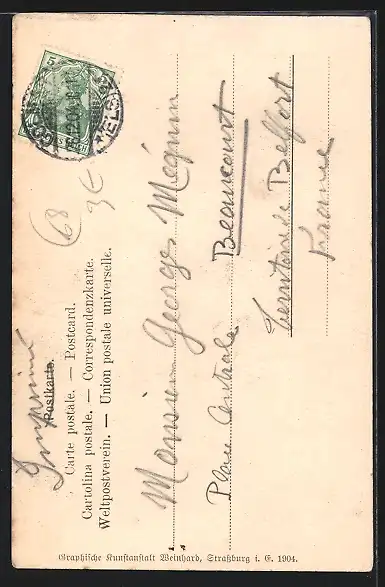 Imprimé
Postkarte.
Carte postale. — Postcard.
Cartolina postale. — Correspondenzkarte.
Weltpostverein. — Union postale universelle.
68
3€
5
Monsieur Georges Méquin
Place Centrale
Beaucourt
Territoire de Belfort
France
Graphische Kunstanstalt Weinhard, Straßburg i. E. 1904.